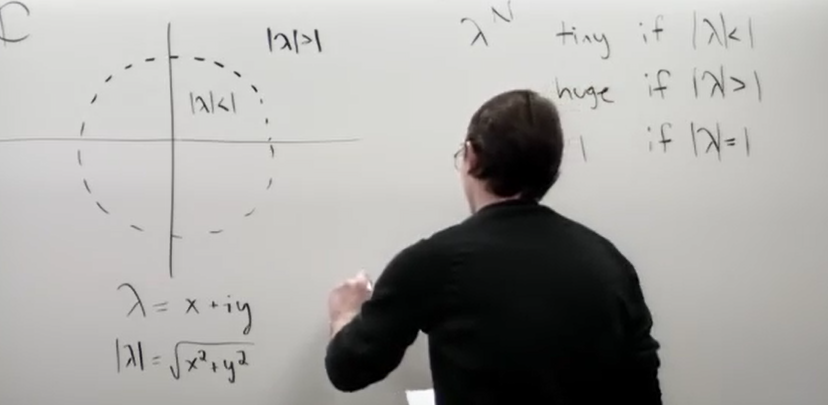 ℂ
|λ|>1
|λ|<1
λ = x + iy
|λ| = √x² + y²
λᴺ tiny if |λ|<1
huge if |λ|>1
1 if |λ|=1